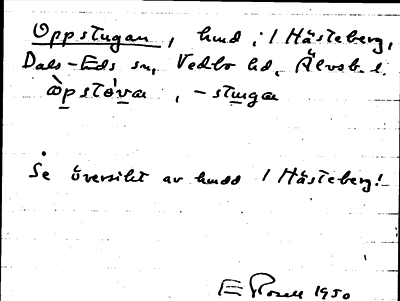 Oppstugan, hmd, i 1 Hästeberg,
Dals-Eds sn, Vedbo hd, Älvsb. l.
òpstó̀va, -stuga
Se översikt av hmdd 1 Hästeberg!
E Rosell 1950